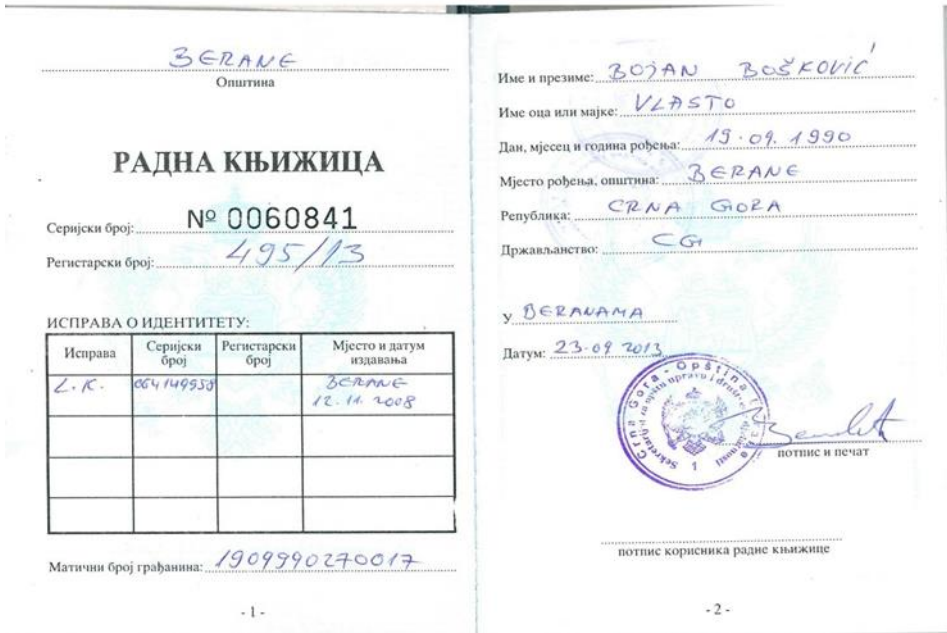 BERANE
Општина
РАДНА КЊИЖИЦА
Серијски број: № 0060841
Регистарски број: 495/13
ИСПРАВА О ИДЕНТИТЕТУ:
Исправа Серијски број Регистарски број Мјесто и датум издавања
L.K. 064149958 BERANE 12.11.2008
Матични број грађанина: 1909990270017
- 1 -
Име и презиме: BOJAN BOŠKOVIĆ
Име оца или мајке: VLASTO
Дан, мјесец и година рођења: 19.09.1990
Мјесто рођења, општина: BERANE
Република: CRNA GORA
Држављанство: CG
У BERANAMA
Датум: 23.09 2013
Crna Gora - Opština
Sekretarijat za opštu upravu i društvene
1
потпис и печат
потпис корисника радне књижице
- 2 -